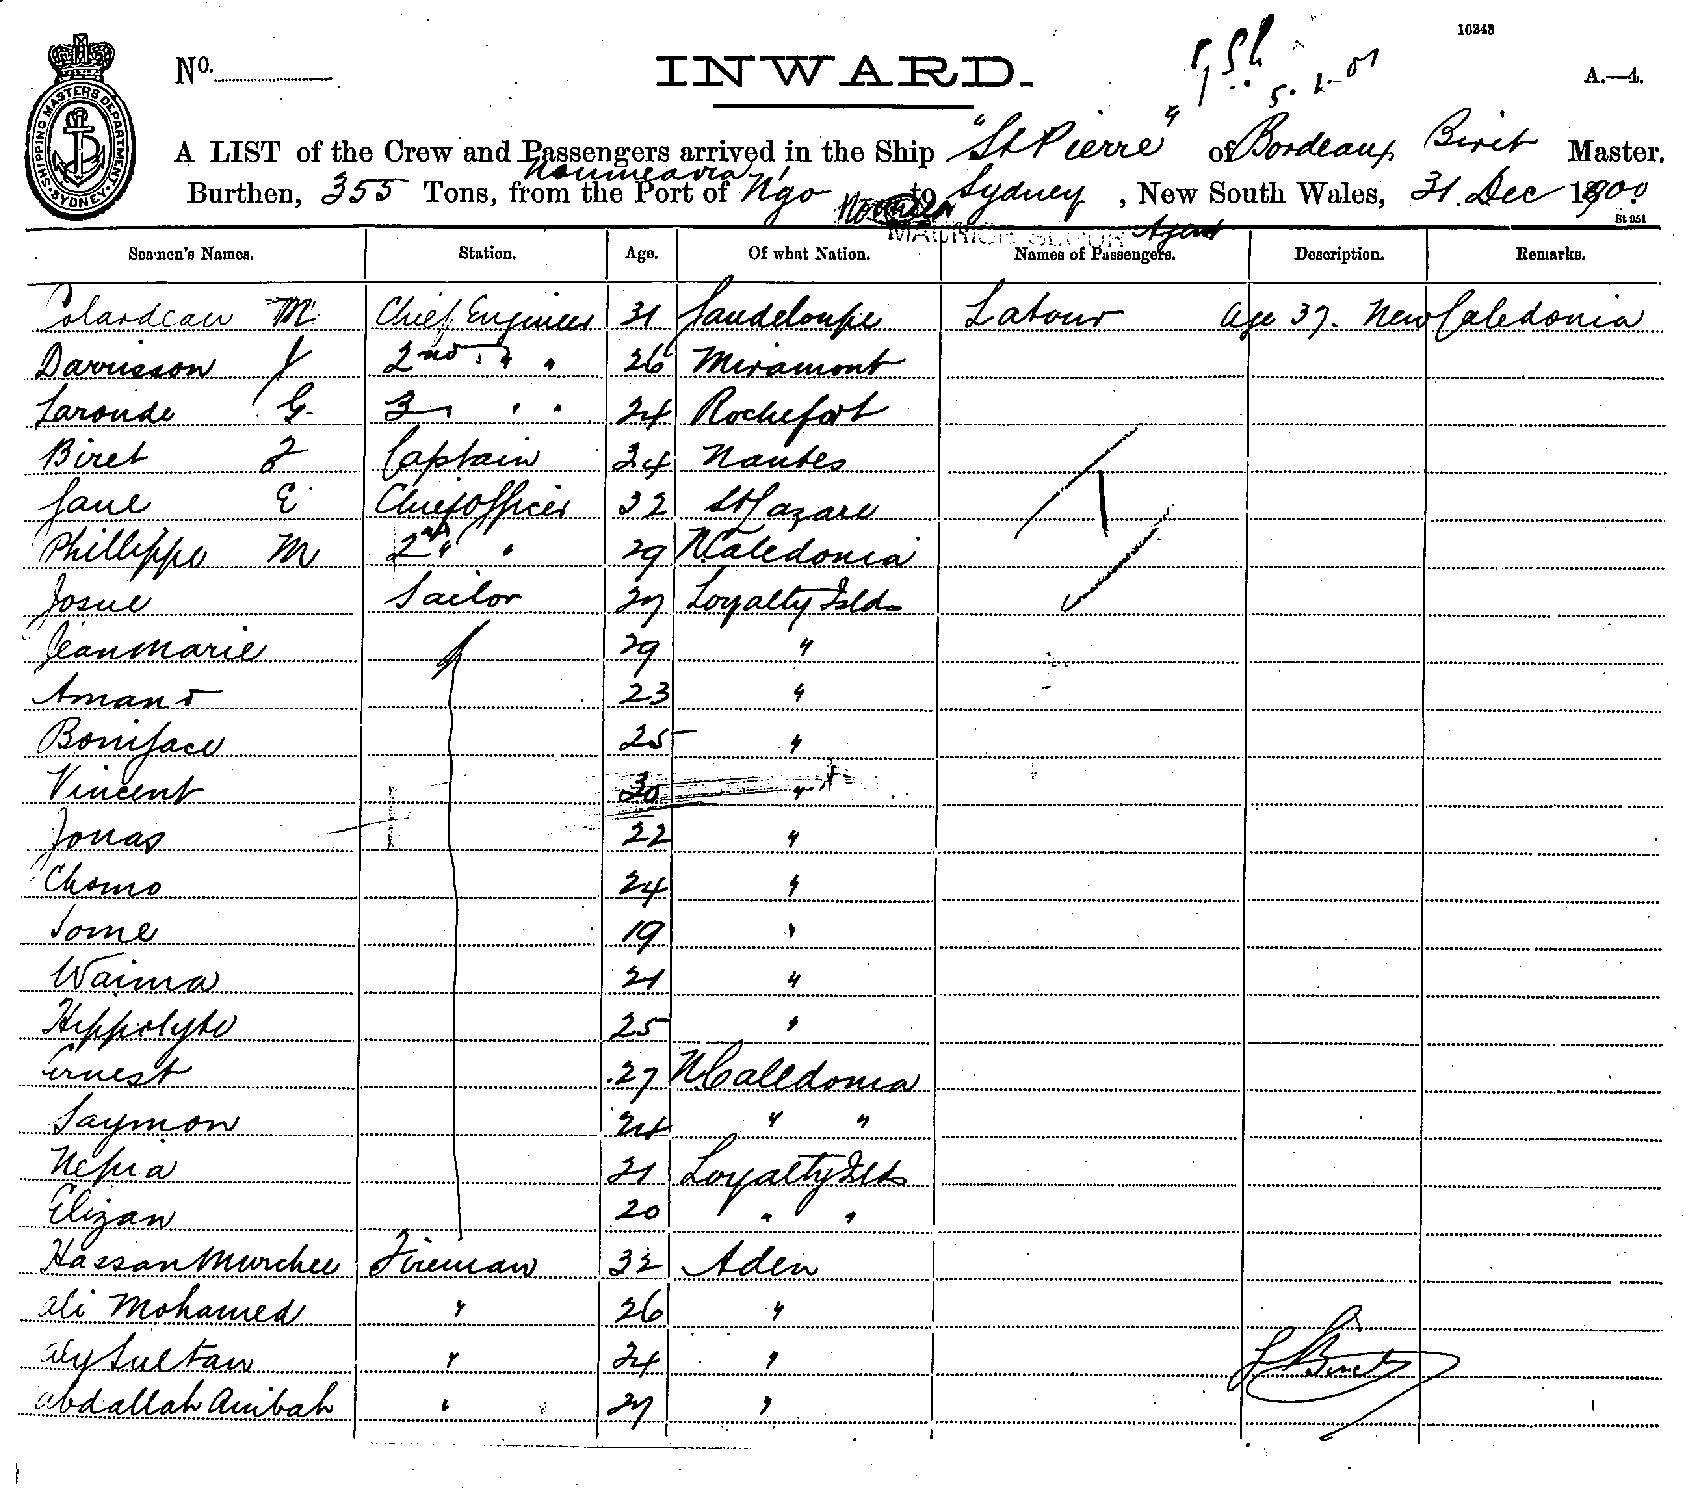 10243
No. INWARD. A.—4.
5.1.01
SHIPPING MASTERS DEPARTMENT SYDNEY
A LIST of the Crew and Passengers arrived in the Ship "St Pierre" of Bordeaux Biret Master.
Noumea via
Burthen, 355 Tons, from the Port of Ngo to Sydney, New South Wales, 31 Dec 1900
St 351
Agent
Seamen's Names. Station. Age. Of what Nation. Names of Passengers. Description. Remarks.
Colardeau M Chief Engineer 31 Gaudeloupe Latour age 37. New Caledonia
Davisson J 2nd " " 26 Miramont
Laronde G. 3 " " 24 Rochefort
Biret F Captain 34 Nantes
Jane E Chief Officer 32 St Lazare
Phillippe M 2nd " " 29 N. Caledonia
Josue Sailor 27 Loyalty Islds
Jean Marie 29 "
Amand 23 "
Boniface 25 "
Vincent 30 "
Jonas 22 "
Chomo 24 "
Some 19 "
Waima 21 "
Hippolyte 25 "
Ernest 27 N. Caledonia
Saymon 24 " "
Nepia 21 Loyalty Islds
Elizan 20 " "
Hassan Murchee Fireman 32 Aden
Ali Mohamed " 26 "
Aly Sultan " 24 "
Abdallah Anibah " 27 "
F Biret